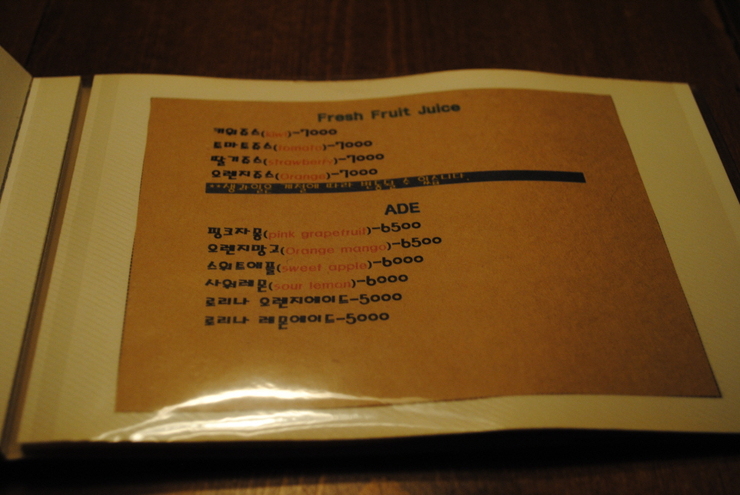 Fresh Fruit Juice
키위쥬스(kiwi)-7000
토마토쥬스(tomato)-7000
딸기쥬스(strawberry)-7000
오렌지쥬스(Orange)-7000
**생과일은 계절에 따라 변동될 수 있습니다.
ADE
핑크자몽(pink grapefruit)-6500
오렌지망고(Orange mango)-6500
스위트애플(sweet apple)-6000
사워레몬(sour lemon)-6000
로리나 오렌지에이드-5000
로리나 레몬에이드-5000